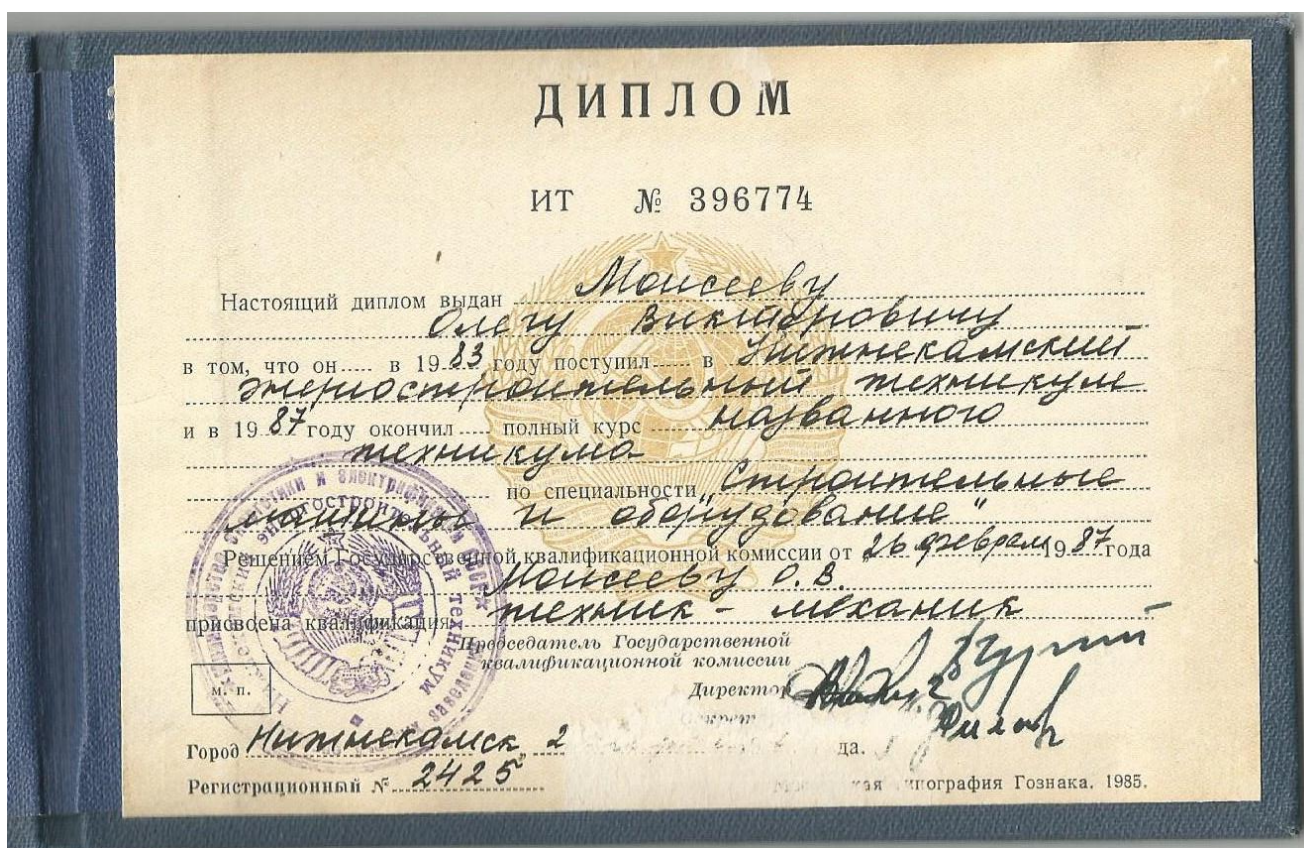 ДИПЛОМ
ИТ № 396774
Настоящий диплом выдан Моисееву
Олегу Викторовичу
в том, что он в 1983 году поступил в Нижнекамский
энергостроительный техникум
и в 1987 году окончил полный курс названного
техникума
по специальности „Строительные
машины и оборудование"
Решением Государственной квалификационной комиссии от „26 февраля 1987 года
Моисееву О.В.
присвоена квалификация техник - механик
Председатель Государственной
квалификационной комиссии
Директор
м. п.
Город Нижнекамск, 2
да.
Регистрационный № 2425
типография Гознака. 1985.
энергостроительный техникум